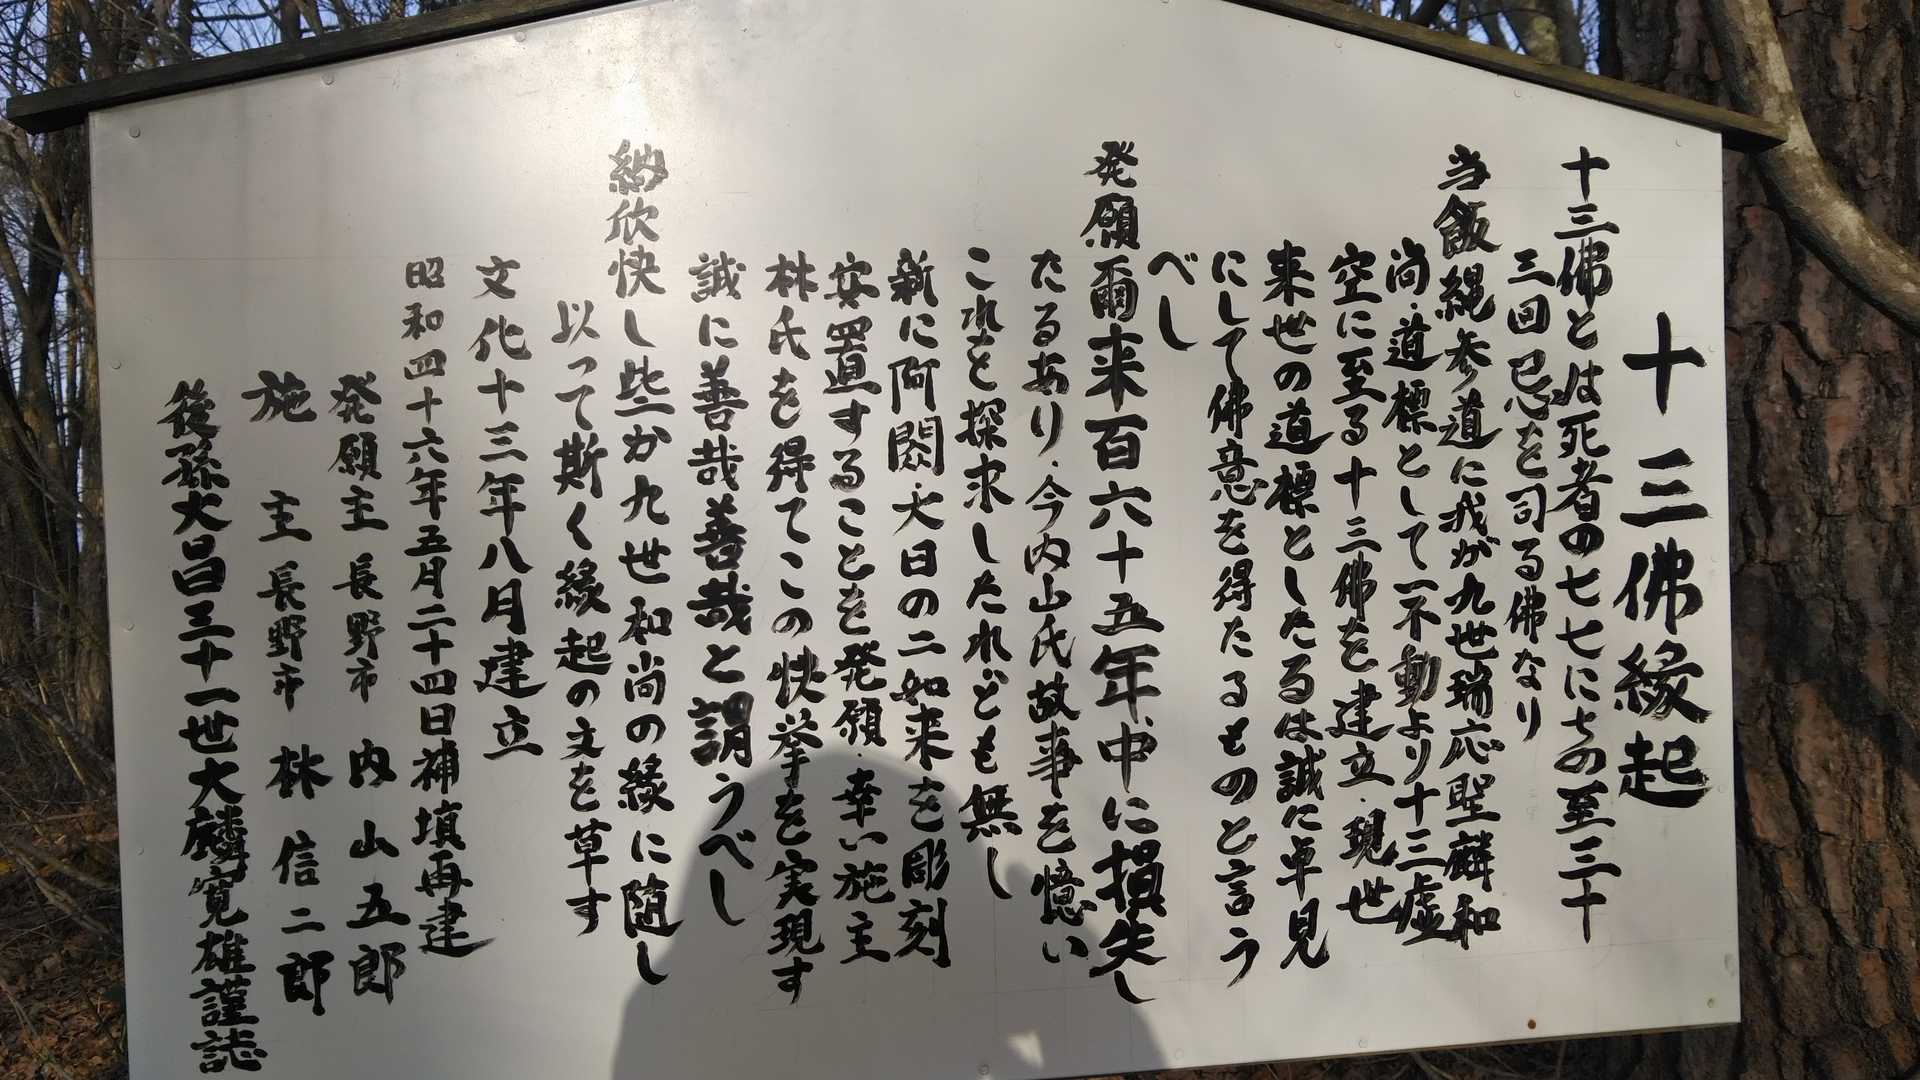 十三佛縁起
十三佛とは死者の七七に七の至三十
三回忌を司る佛なり
当飯縄参道に我が九世瑞応聖麟和
尚・道標として一不動より十三虚
空に至る十三佛を建立・現世
来世の道標としたるは誠に卓見
にして佛意を得たるものと言う
べし
発願爾来百六十五年、中に損失し
たるあり、今内山氏故事を憶い
これを探求したれども無し
新に阿閦・大日の二如来を彫刻
安置することを発願・幸い施主
林氏を得てこの快挙を実現す
誠に善哉善哉と謂うべし
納欣快し些か九世和尚の縁に随し
以って斯く縁起の文を草す
文化十三年八月建立
昭和四十六年五月二十四日補填再建
発願主 長野市 内山五郎
施主 長野市 林信二郎
後孫大昌三十一世大麟寛雄謹誌